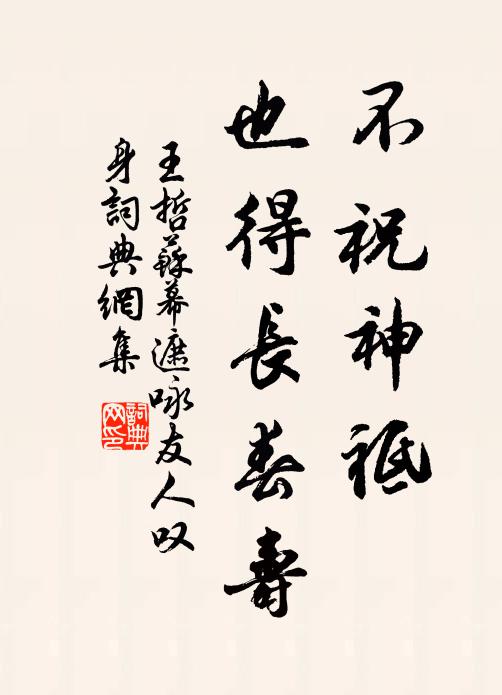 不祝神祗
也得長春壽
王哲蘇幕遮咏友人叹
身詞典網集
詞典
网印